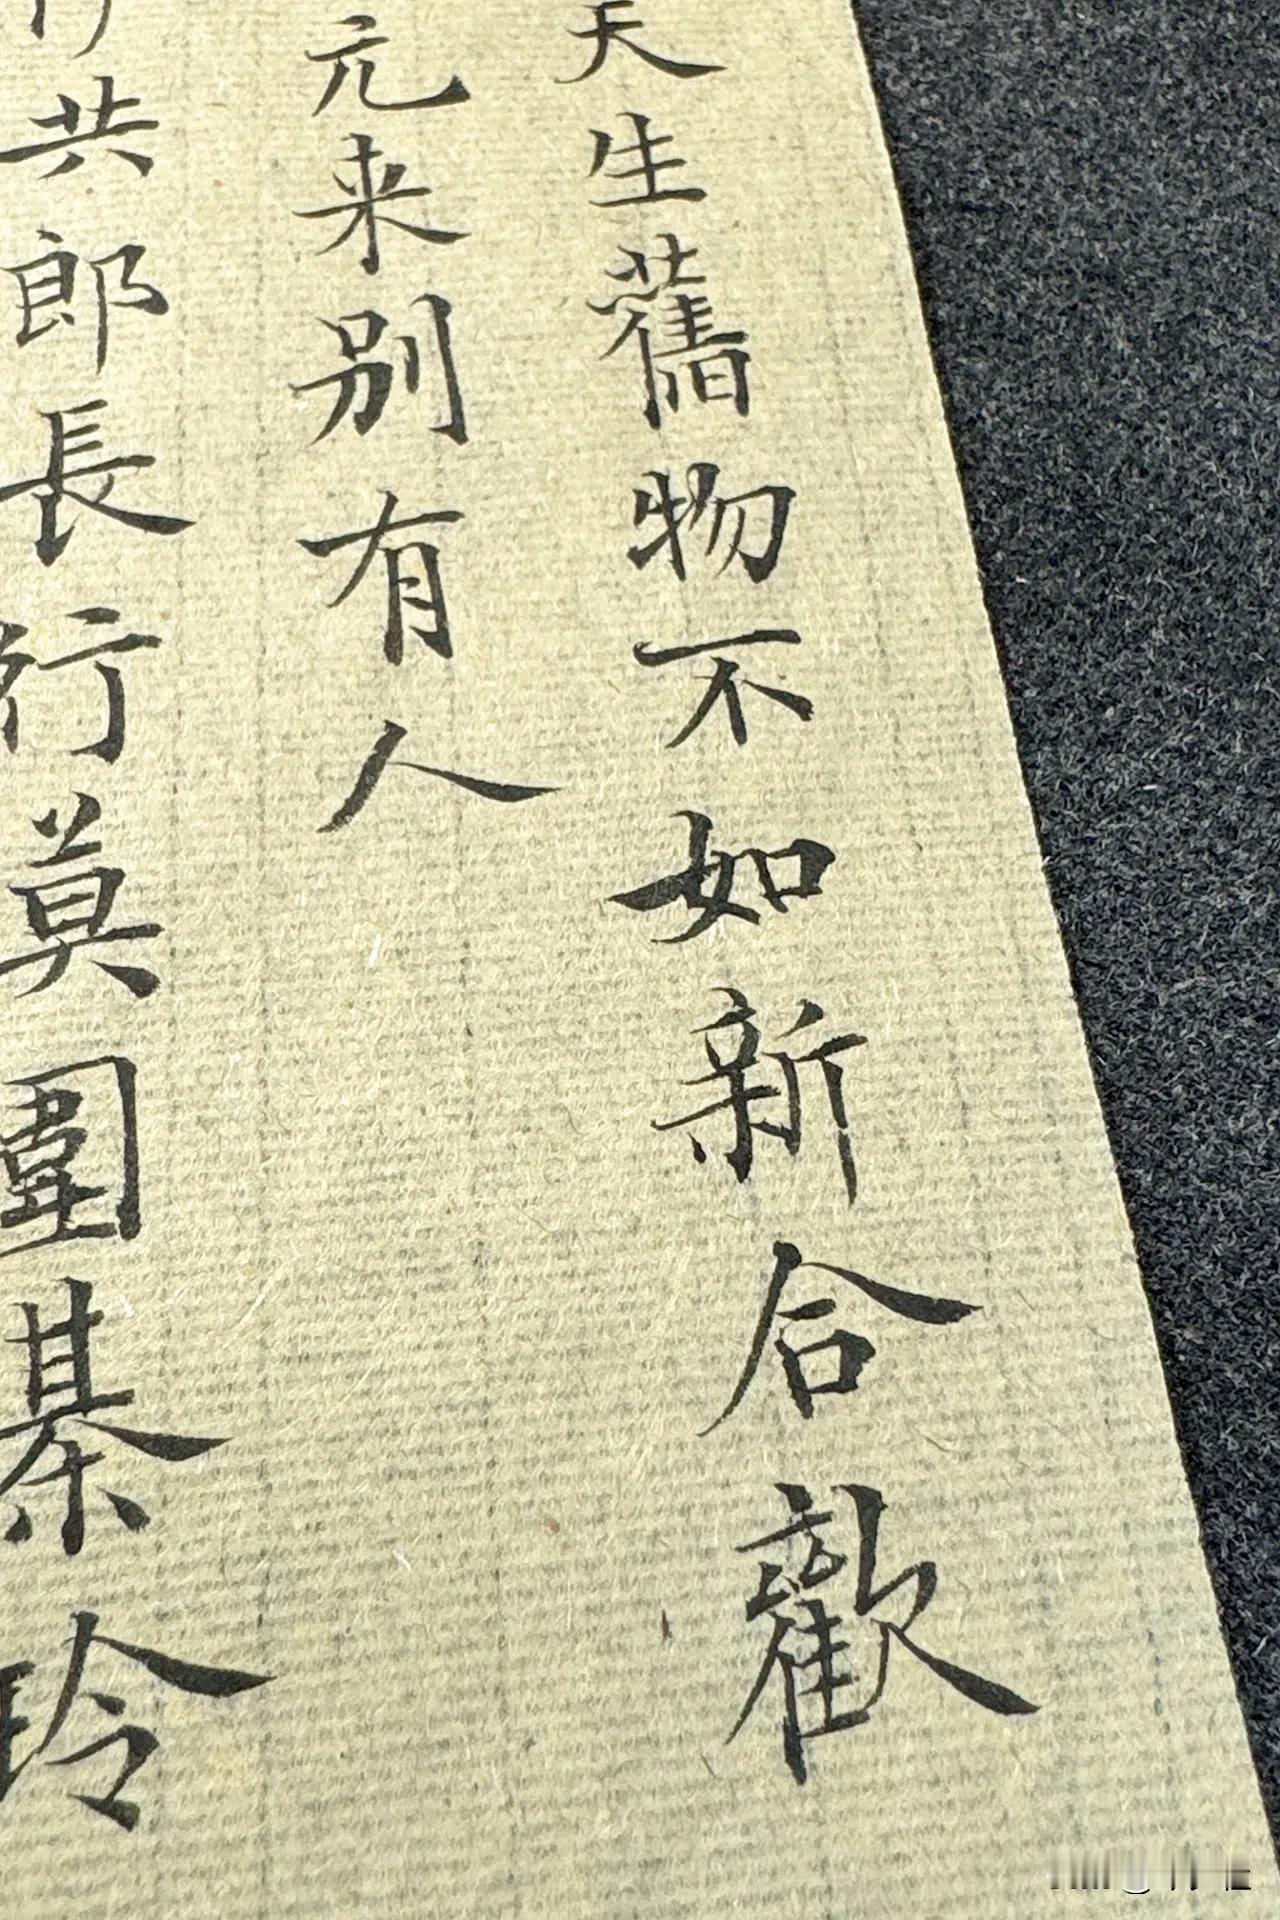 天生舊物不如新合歡
元来别有人
共郎長行莫圍棊玲